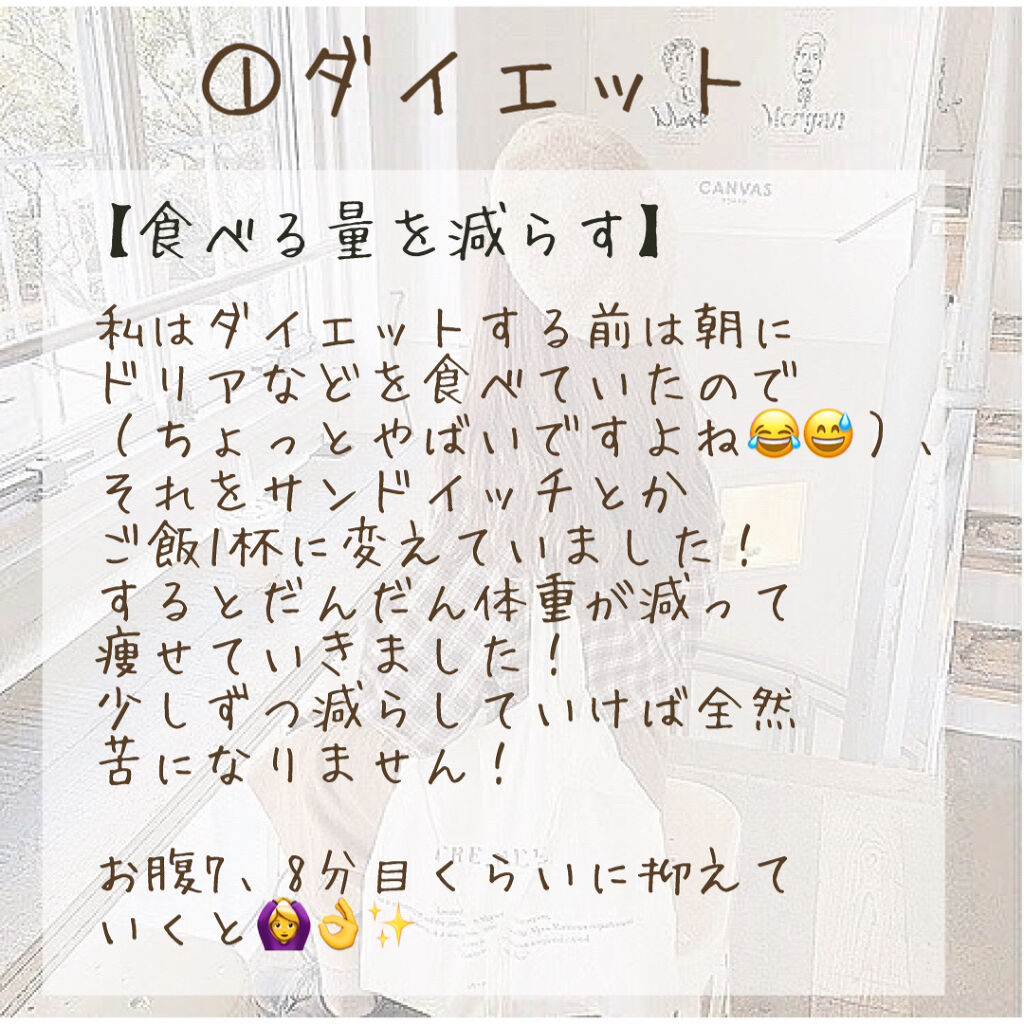 ①ダイエット
Morgan
CANVAS
【食べる量を減らす】
私はダイエットする前は朝に
ドリアなどを食べていたので
(ちょっとやばいですよね😂😅)、
それをサンドイッチとか
ご飯1杯に変えていました!
するとだんだん体重が減って
痩せていきました!
少しずつ減らしていけば全然
苦になりません!
お腹7、8分目くらいに抑えて
いくと🙆‍♀️👌✨